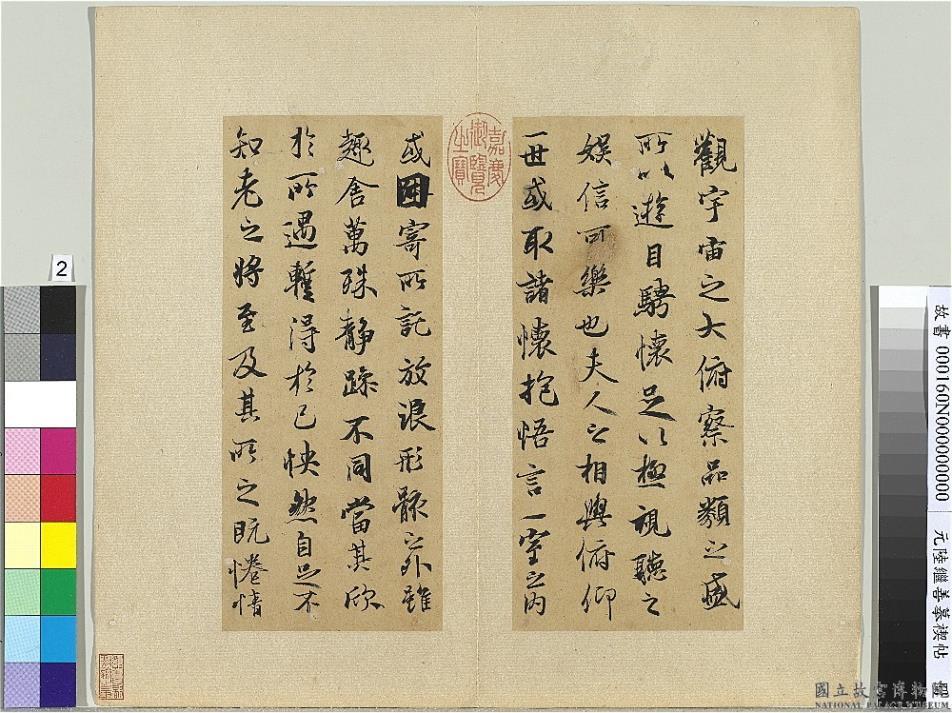 觀宇宙之大俯察品類之盛
所以遊目騁懷足以極視聽之
娛信可樂也夫人之相與俯仰
一世或取諸懷抱悟言一室之內
或因寄所託放浪形骸之外雖
趣舍萬殊靜躁不同當其欣
於所遇暫得於己怏然自足不
知老之將至及其所之既惓情
嘉慶御覽之寶
2
故書 000160N000000000
元陸繼善摹禊帖
國立故宮博物院
NATIONAL PALACE MUSEUM